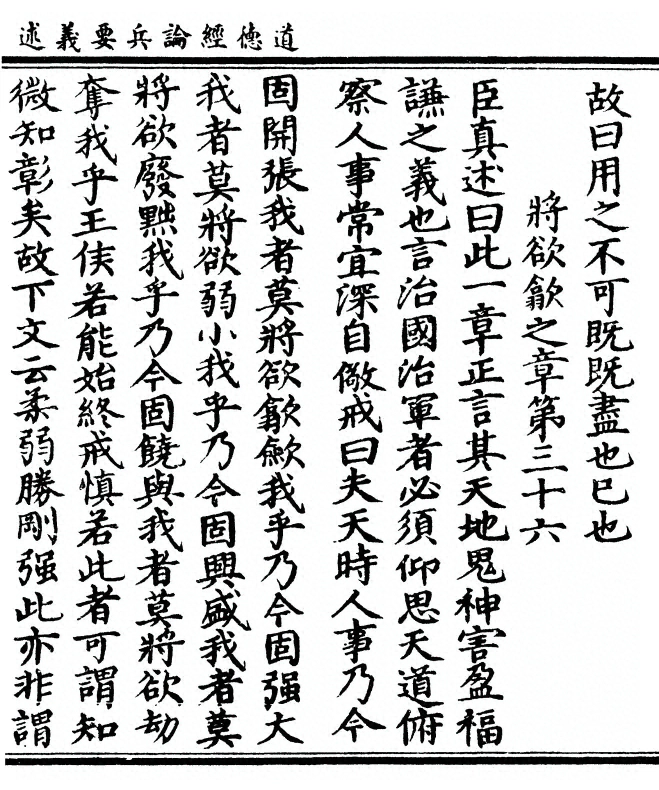 道德經論兵要義述
故曰用之不可既既盡也已也
將欲歙之章第三十六
臣真述曰此一章正言其天地鬼神害盈福
謙之義也言治國治軍者必須仰思天道俯
察人事常宜深自儆戒曰夫天時人事乃今
固開張我者莫將欲歙歛我乎乃今固强大
我者莫將欲弱小我乎乃今固興盛我者莫
將欲廢黜我乎乃今固饒與我者莫將欲劫
奪我乎王侯若能始終戒慎若此者可謂知
微知彰矣故下文云柔弱勝剛强此亦非謂